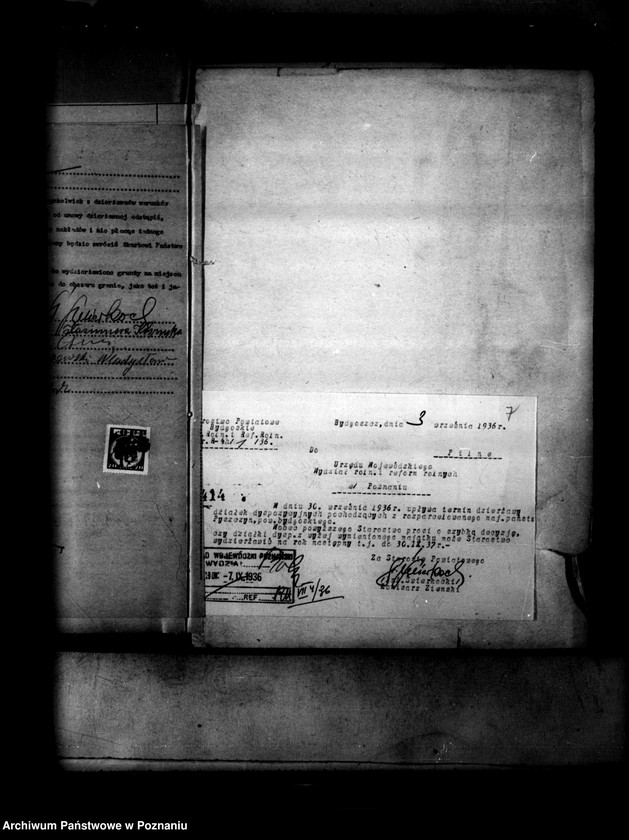 kolwiek z dzierżawców warunków
od umowy dzierżawnej odstąpił,
nakładów i nie płacąc żadnego
będzie zwrócić Skarbowi Państwa
wydzierżawione grunty na miejscu
do obszaru granic, jako też i ja-
Kazimiera
Władysław
7
rostwo Powiatowe
Bydgoskie
Roln. i Ref. Roln.
136.
Bydgoszcz, dnia 3 września 1936 r.
Do
Pilne
Urzędu Wojewódzkiego
Wydział roln. i reform rolnych
w Poznaniu
414
W dniu 30. września 1936 r. upływa termin dzierżawy
działek dyspozycyjnych pochodzących z rozparcelowanego maj. państw.
Pyszczyn, pow. bydgoskiego.
Wobec powyższego Starostwo prosi o szybką decyzję,
czy działki dysp. z wyżej wymienionego majątku może Starostwo
wydzierżawić na rok następny t.j. do 30.IX.37.-
Za Starostę Powiatowego
Komisarz Ziemski
D WOJEWÓDZKI POZNAŃSKI
WYDZIAŁ
-7.IX.1936
REF.
VII 4/36
Archiwum Państwowe w Poznaniu